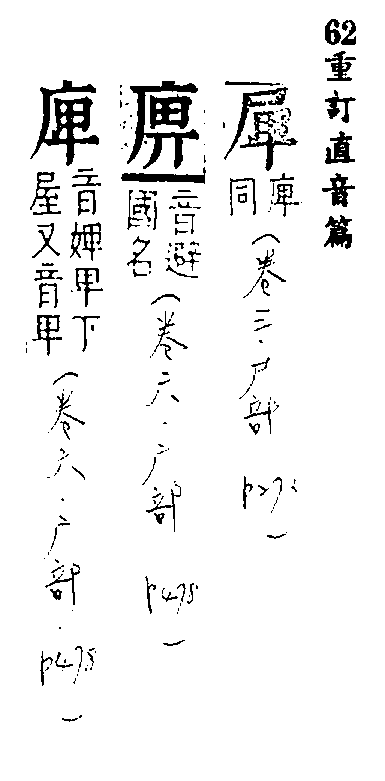 62重訂直音篇
庳
同
(卷三.尸部
)
音避
國名
(卷六.广部 p478)
庳
音婢卑下
屋又音卑
(卷六.广部.p478)